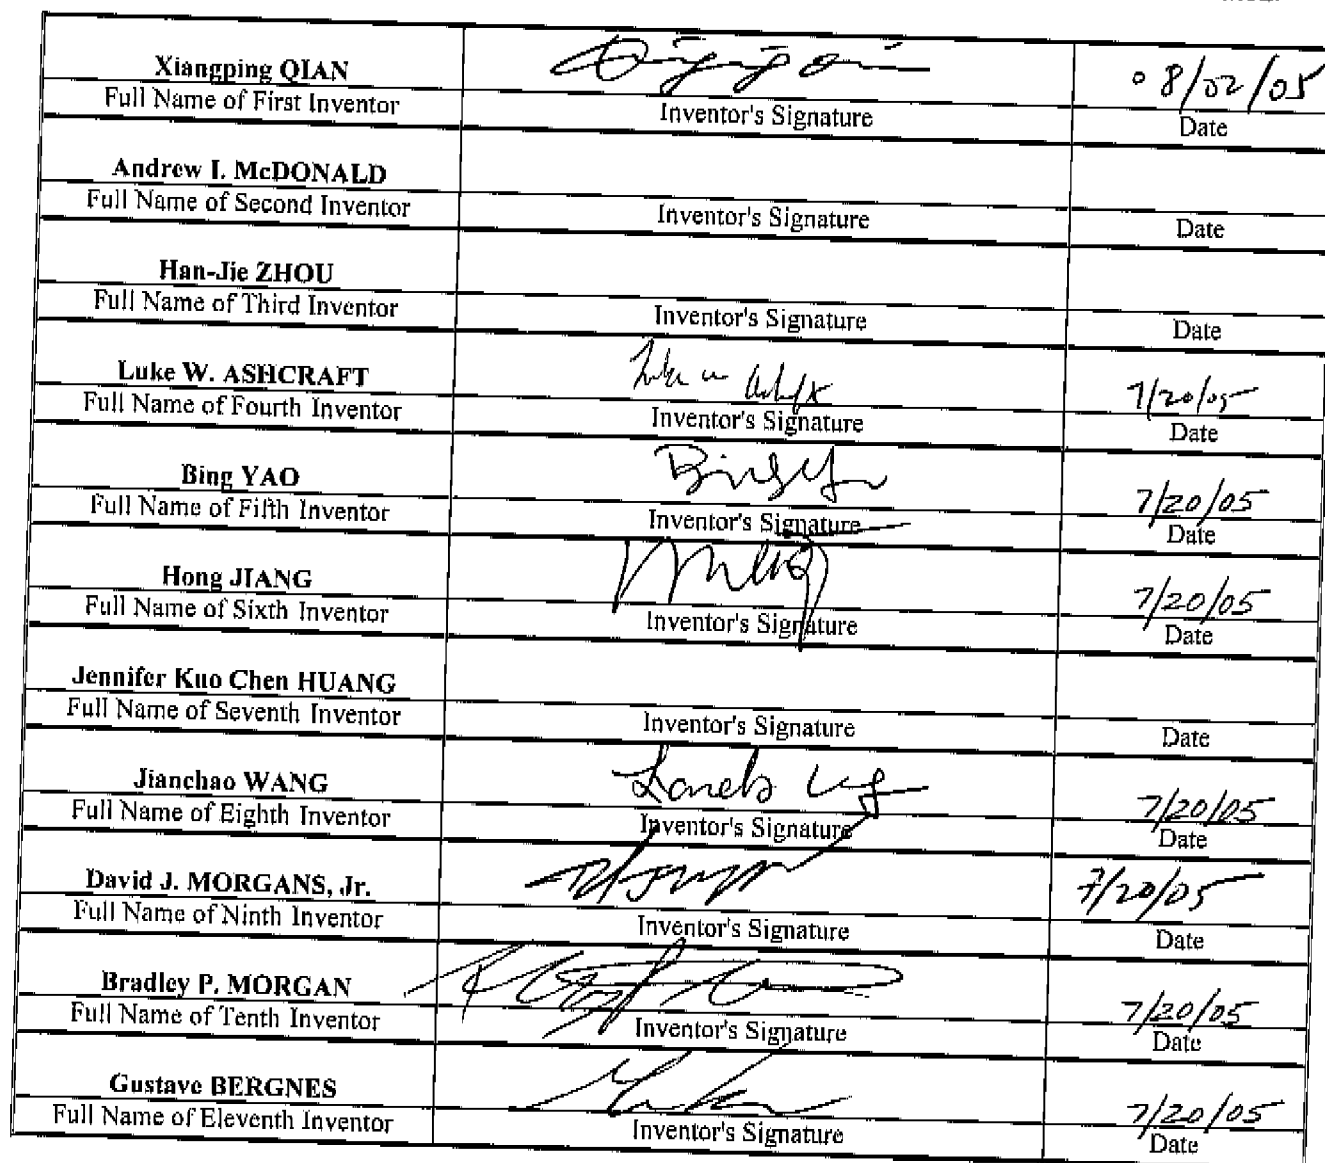 Xiangping QIAN
08/02/05
Full Name of First Inventor
Inventor's Signature
Date
Andrew I. McDONALD
Full Name of Second Inventor
Inventor's Signature
Date
Han-Jie ZHOU
Full Name of Third Inventor
Inventor's Signature
Date
Luke W. ASHCRAFT
7/20/05
Full Name of Fourth Inventor
Inventor's Signature
Date
Bing YAO
7/20/05
Full Name of Fifth Inventor
Inventor's Signature
Date
Hong JIANG
7/20/05
Full Name of Sixth Inventor
Inventor's Signature
Date
Jennifer Kuo Chen HUANG
Full Name of Seventh Inventor
Inventor's Signature
Date
Jianchao WANG
7/20/05
Full Name of Eighth Inventor
Inventor's Signature
Date
David J. MORGANS, Jr.
7/20/05
Full Name of Ninth Inventor
Inventor's Signature
Date
Bradley P. MORGAN
7/20/05
Full Name of Tenth Inventor
Inventor's Signature
Date
Gustave BERGNES
7/20/05
Full Name of Eleventh Inventor
Inventor's Signature
Date